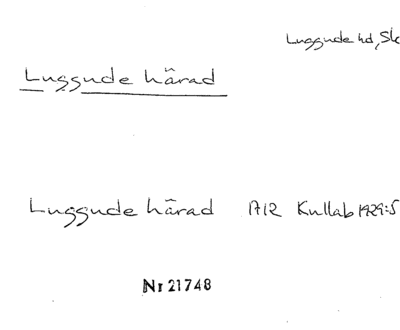 Luggude hd, Sk
Luggude härad
Luggude härad A12 Kullab 1929:5
Nr 21748